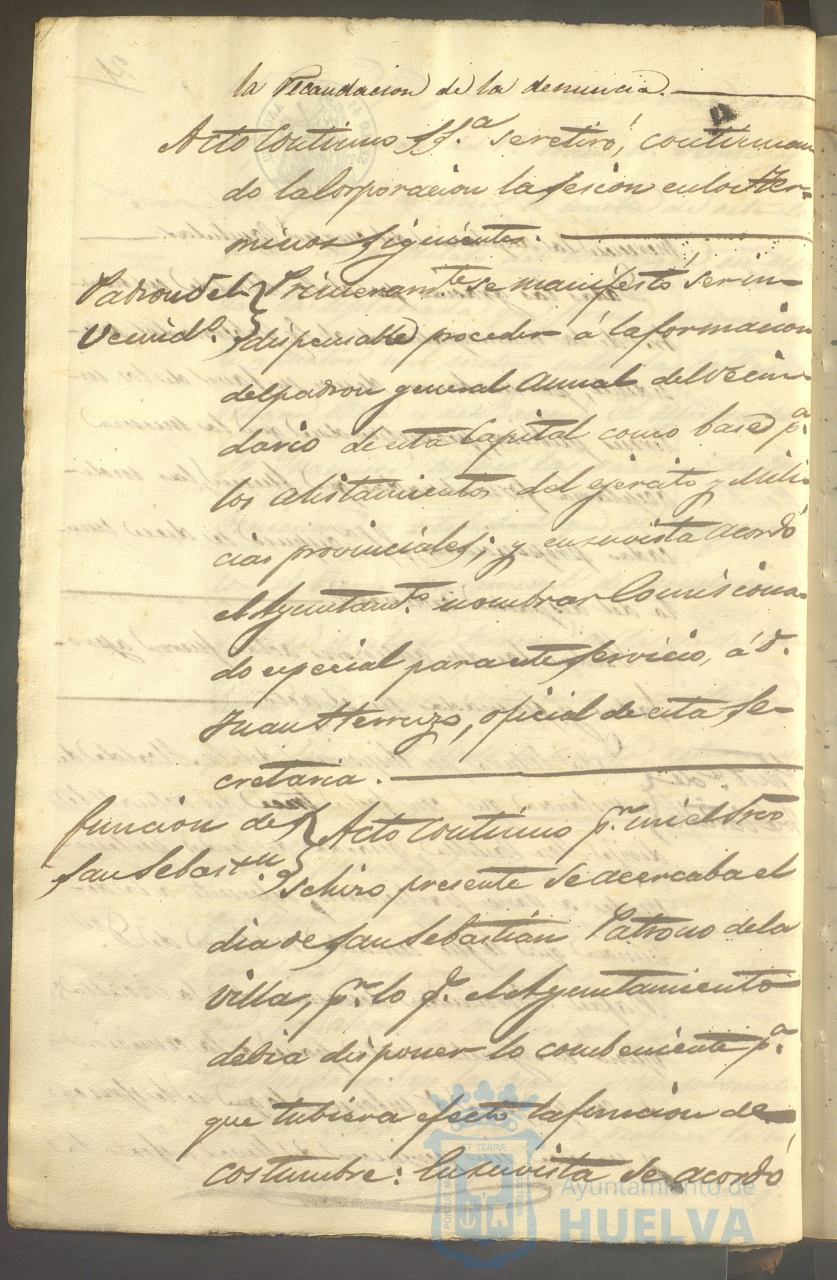 la recaudacion de la denuncia.
Acto continuo S.S.ª se retiró, continuan
do la Corporacion la sesion en los ter=
minos siguientes.
Padron del
Vecind.º
Primeram.te se manifestó ser in=
dispensable proceder á la formacion
del padron general anual del vecin=
dario de esta Capital como base p.ª
los alistamientos del ejercito y Mili
cias provinciales; y en su vista acordó
el Ayuntam.to nombrar Comisiona=
do especial para este servicio, á D.
Juan Herrezo, oficial de esta Se=
cretaria.
funcion de
San Sebast.n
Acto continuo p.r
se hizo presente se acercaba el
dia de San Sebastián Patrono de la
Villa, p.r lo q.e el Ayuntamiento
debia disponer lo combeniente p.ª
que tubiera efecto la funcion de
costumbre: En su vista se acordó
Ayuntamiento de
HUELVA